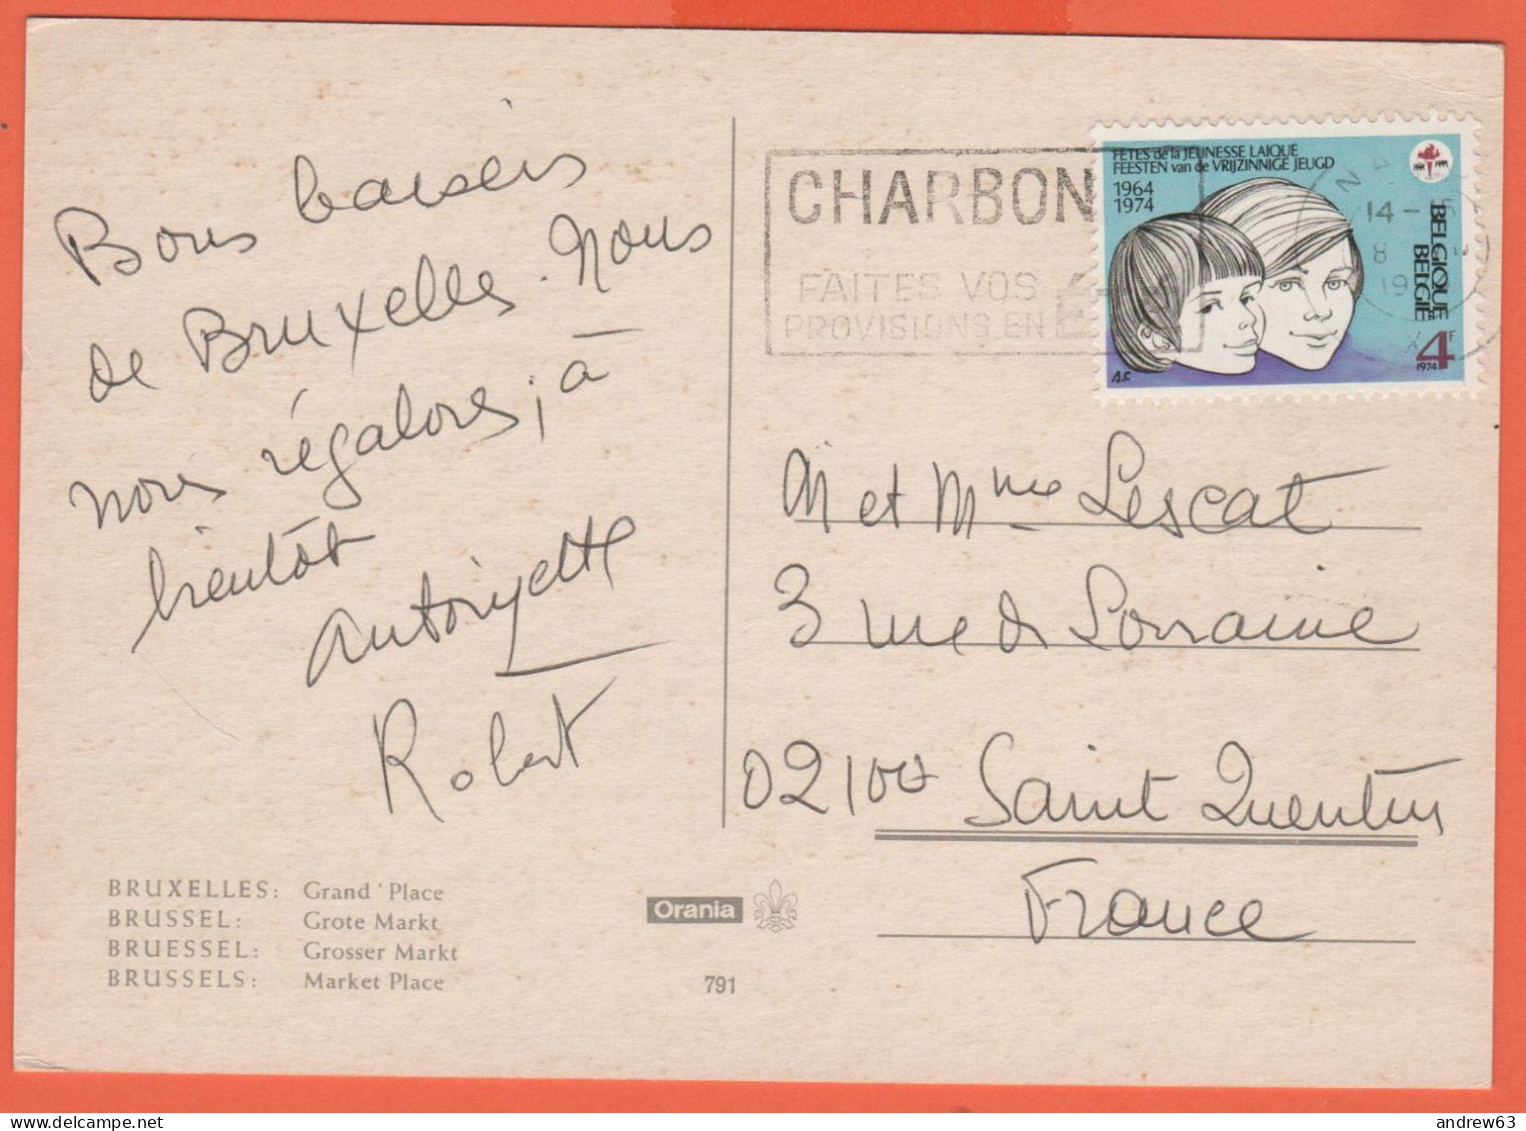 Bons baisers
de Bruxelles. Nous
nous régalons, à
bientôt
Antoinette
Robert
CHARBON
FAITES VOS
PROVISIONS EN ÉTÉ
FÊTES de la JEUNESSE LAIQUE
FEESTEN van de VRIJZINNIGE JEUGD
1964
1974
BELGIQUE
BELGIË
4F
1974
A.C
14 -
8
19
M et Mme Lescat
3 rue de Lorraine
02100 Saint Quentin
France
BRUXELLES: Grand'Place
BRUSSEL: Grote Markt
BRUESSEL: Grosser Markt
BRUSSELS: Market Place
Orania
791
andrew63